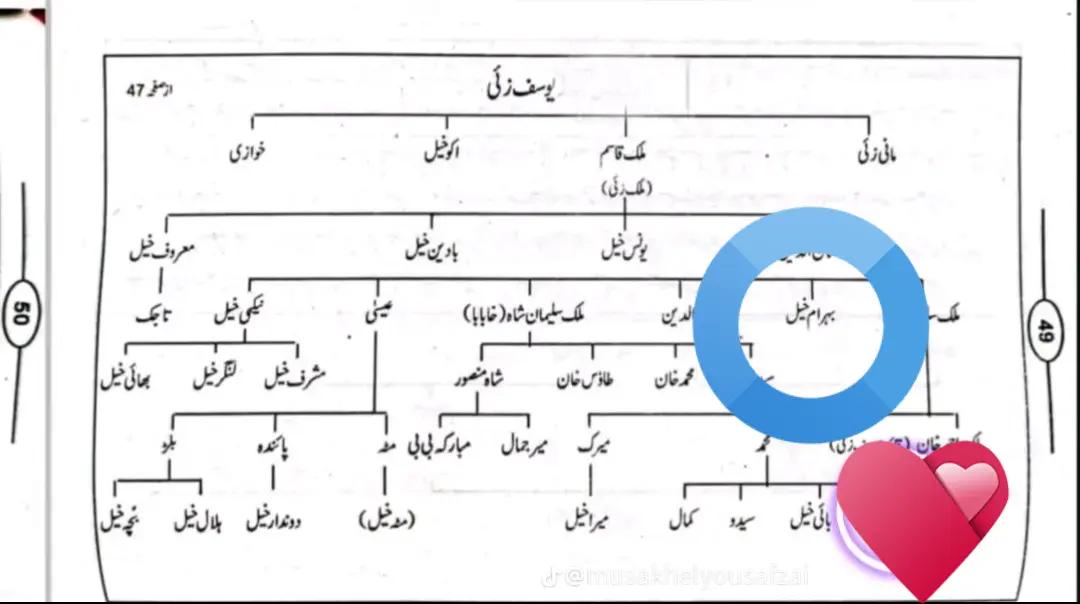 یوسف زئی
از صفحہ 47
مانی زئی ملک قاسم اکوخیل خوازی
(ملک زئی)
یونس خیل بادین خیل معروف خیل
ملک بہرام خیل الدین ملک سلیمان شاہ (خابابا) عیسیٰ نیکی خیل تاجک
محمد خان طاؤس خان شاہ منصور مشرف خیل لنگر خیل بھائی خیل
خان محمد میرک میر جمال مبارکہ بی بی مٹہ پائندہ بلو
بائی خیل سیدو کمال میرا خیل (مٹہ خیل) دوندار خیل ہلال خیل بچہ خیل
49
50
@musakhelyousafzai